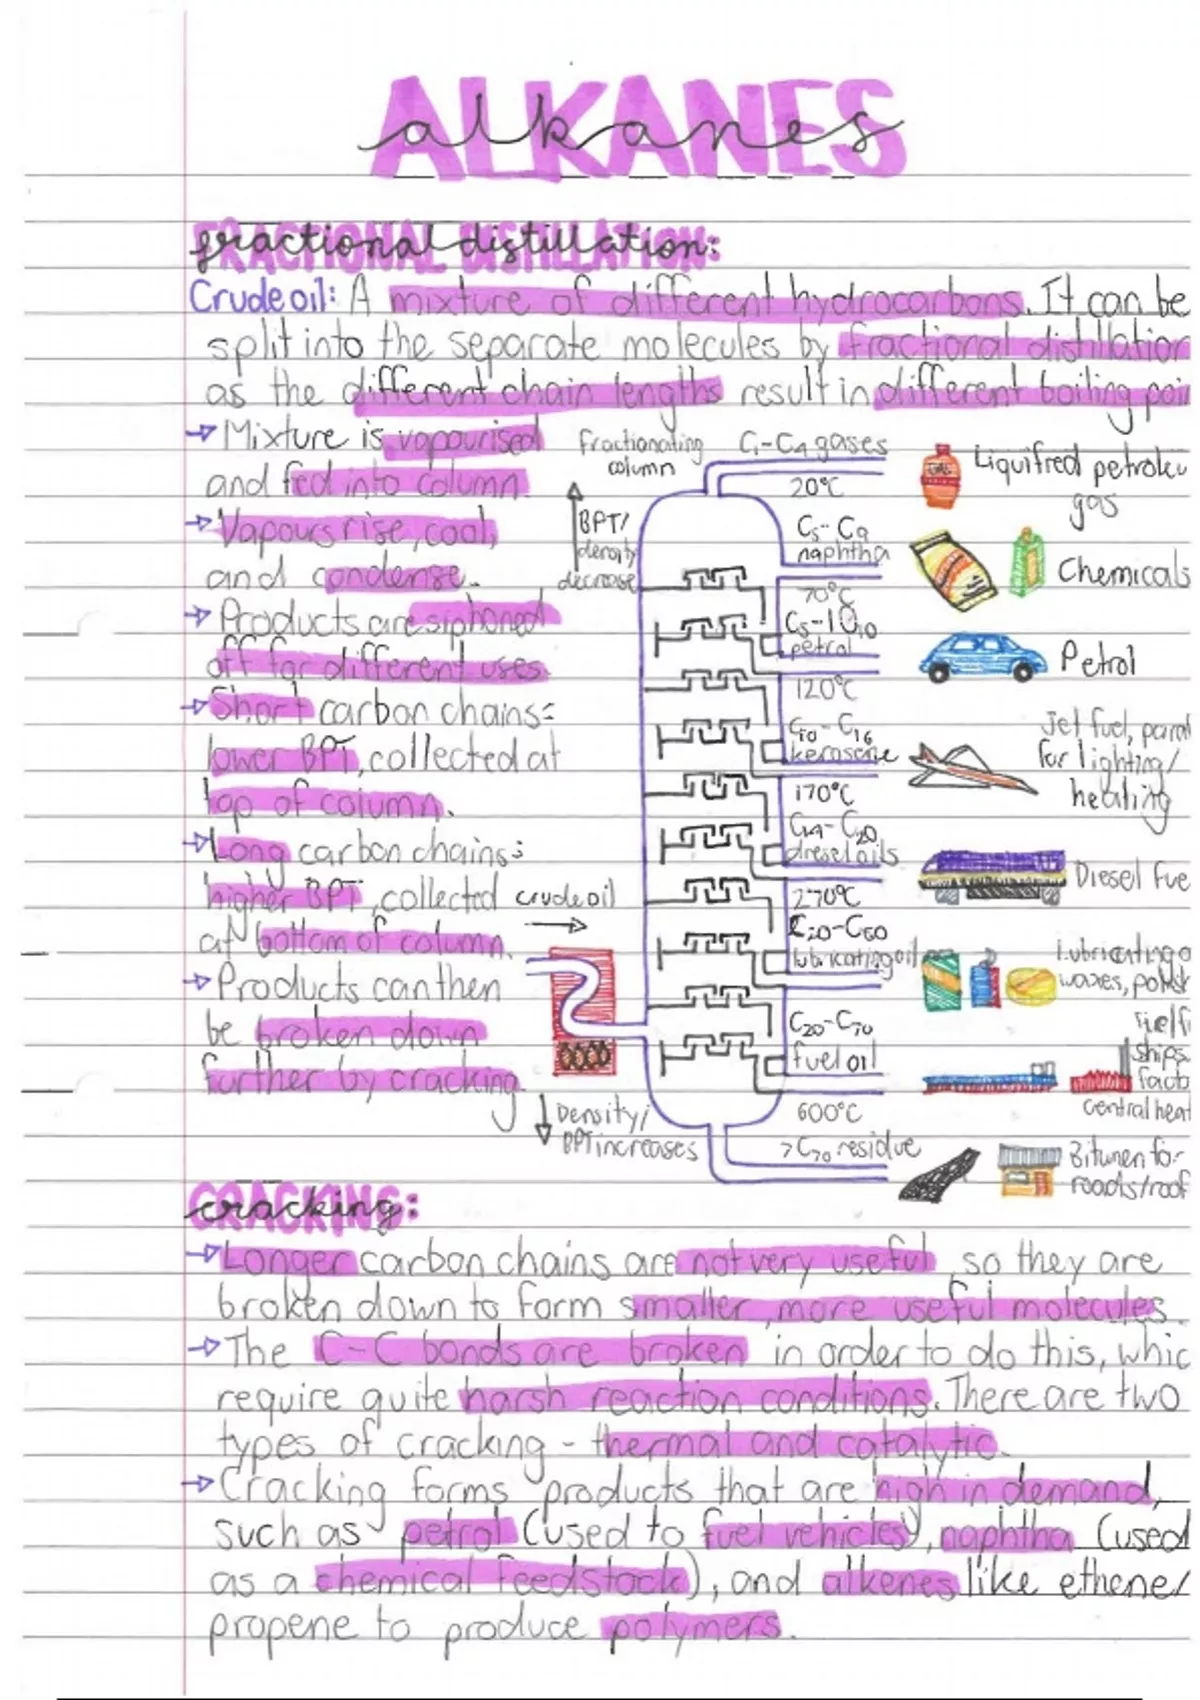 ALKANES
alkanes
FRACTIONAL DISTILLATION:
fractional distillation:
Crude oil: A mixture of different hydrocarbons. It can be
split into the separate molecules by fractional distillation
as the different chain lengths result in different boiling poi
→ Mixture is vapourised
and fed into column.
→ Vapours rise, cool,
and condense.
→ Products are siphoned
off for different uses.
→ Short carbon chains:
lower BPT, collected at
top of column.
→ Long carbon chains:
higher BPT, collected
at bottom of column.
→ Products can then
be broken down
further by cracking.
fractionating
column
BPT/
density
decrease
crude oil
Density/
BPT increases
C₁-C₄ gases
20°C
C₅-C₉
naphtha
70°C
C₅-C₁₀
petrol
120°C
C₁₀-C₁₆
kerosene
170°C
C₁₄-C₂₀
diesel oils
270°C
C₂₀-C₅₀
lubricating oil
C₂₀-C₇₀
fuel oil
600°C
>C₇₀ residue
Liquified petroleu
gas
Chemicals
Petrol
Jet fuel, paraf
for lighting/
heating
Diesel fue
Lubricating o
waxes, polish
fuel f
ships,
facto
central heat
Bitumen for
roads/roof
CRACKING:
cracking:
→ Longer carbon chains are not very useful, so they are
broken down to form smaller, more useful molecules.
→ The C-C bonds are broken in order to do this, whic
require quite harsh reaction conditions. There are two
types of cracking - thermal and catalytic.
→ Cracking forms products that are high in demand,
such as petrol (used to fuel vehicles), naphtha (used
as a chemical feedstock), and alkenes like ethene/
propene to produce polymers.